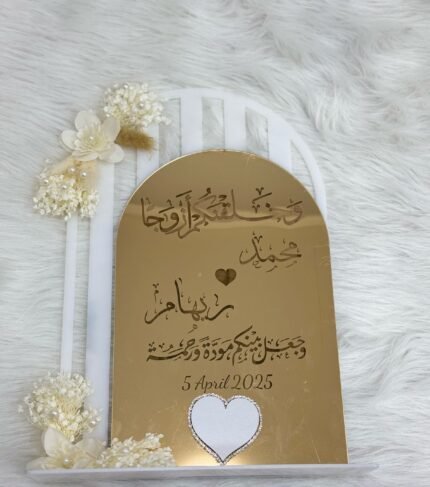 وخلقنكم أزوجا
محمد
ريهام
وجعل بينكم مودة ورحمة
5 April 2025